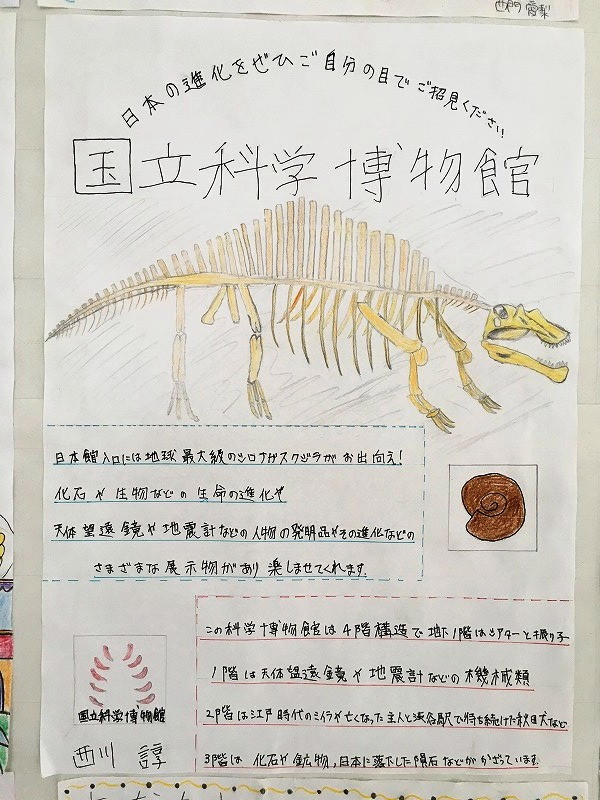 西門 霞梨
日本の進化をぜひご自分の目でご招見ください!
国立科学博物館
日本館入口には地球最大級のシロナガスクジラがお出向え!
化石や生物などの生命の進化や
天体望遠鏡や地震計などの人物の発明品やその進化などの
さまざまな展示物があり楽しませてくれます。
この科学博物館は4階構造で地下1階はシアターと振り子
1階は天体望遠鏡や地震計などの機械類
2階は江戸時代のミイラや亡くなった主人と渋谷駅で待ち続けた秋田犬など
3階は化石や鉱物,日本に落下した隕石などがかざっています。
国立科学博物館
西川 諄